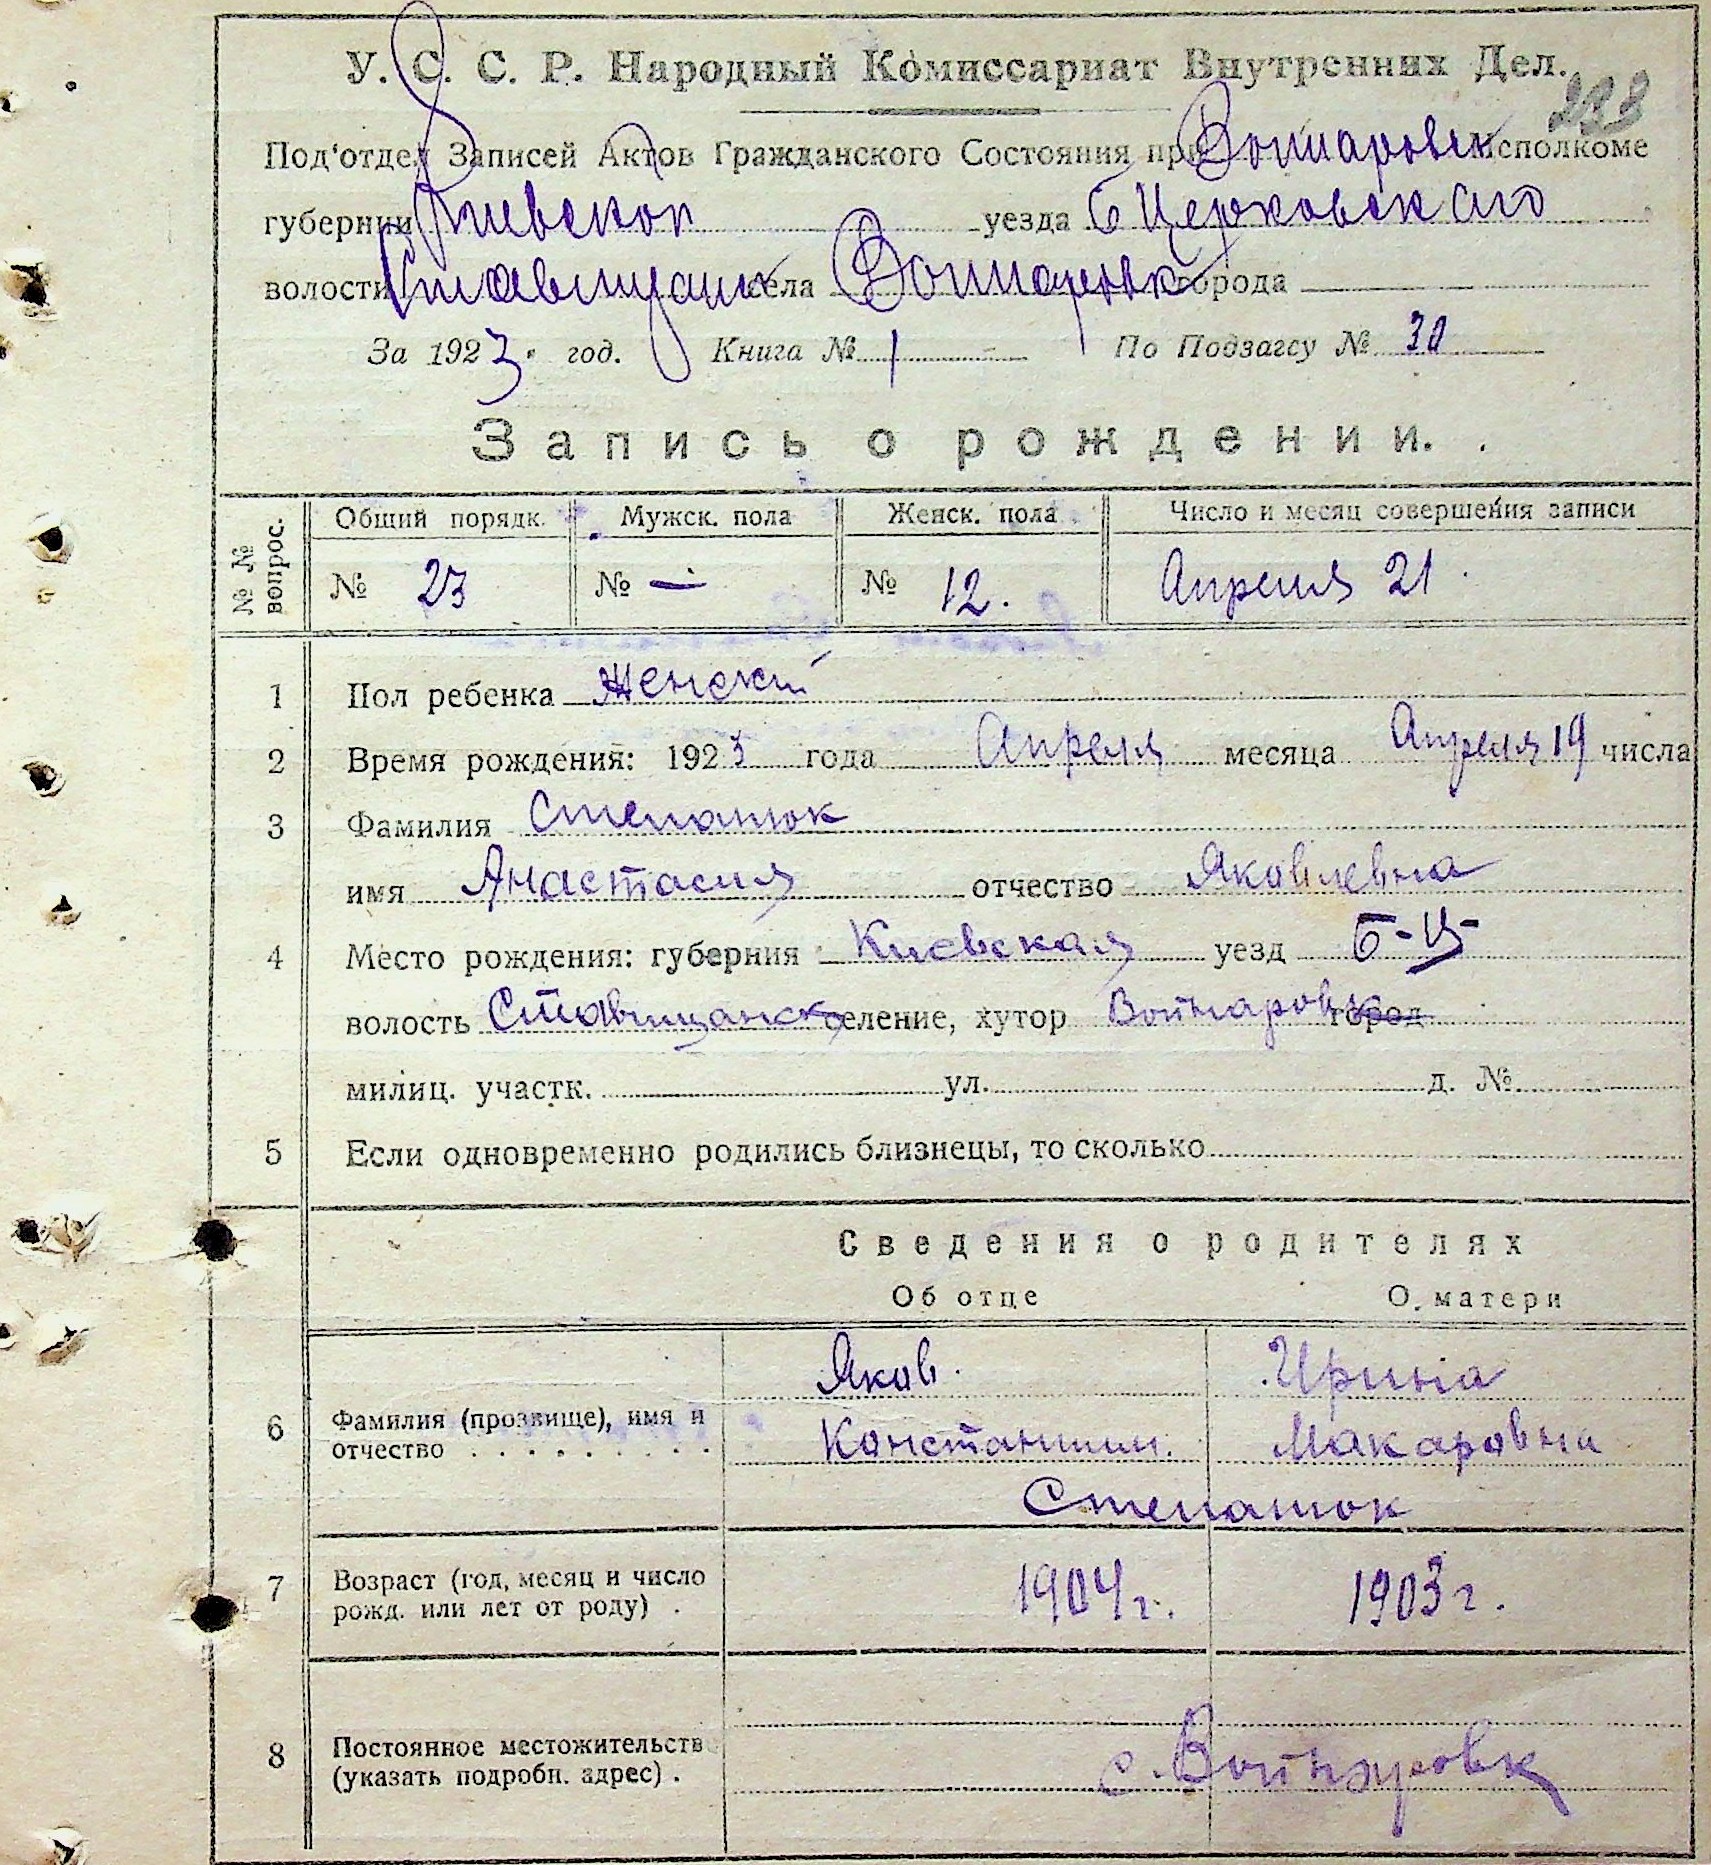 У. С. С. Р. Народный Комиссариат Внутренних Дел.
233
Под'отдел Записей Актов Гражданского Состояния при Войнаровск Исполкоме
губернии Киевской уезда Б Церковскаго
волости Ставищанск села Войнаровк города
За 1923 год. Книга № 1 По Подзагсу № 30
Запись о рождении.
№ № вопрос. Общий порядк. Мужск. пола Женск. пола Число и месяц совершения записи
№ 23 № — № 12. Апреля 21
1 Пол ребенка Женский
2 Время рождения: 1923 года Апреля месяца Апреля 19 числа
3 Фамилия Степанюк
имя Анастасия отчество Яковлевна
4 Место рождения: губерния Киевская уезд Б-Ц-
волость Ставищанск селение, хутор Войнаровк город
милиц. участк. ул. д. №
5 Если одновременно родились близнецы, то сколько
Сведения о родителях
Об отце О матери
Яков Ирина
6 Фамилия (прозвище), имя и
отчество Константин. Макаровна
Степанюк
7 Возраст (год, месяц и число
рожд. или лет от роду) . 1904 г. 1903 г.
8 Постоянное местожительств
(указать подробн. адрес) . с. Войнаровк